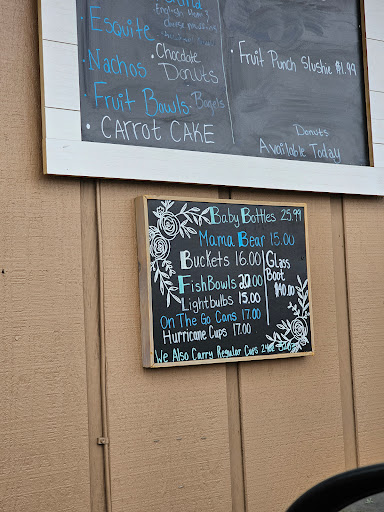 Esquite
Nachos
Chocolate Donuts
Fruit Bowls
Bagels
CARROT CAKE
Fruit Punch Slushie $1.99
Donuts
Available Today
Baby Bottles 25.99
Mama Bear 15.00
Buckets 16.00
FishBowls 20.00
Lightbulbs 15.00
Glass
Boot
$40.00
On The Go Cans 17.00
Hurricane Cups 17.00
We Also Carry Regular Cups